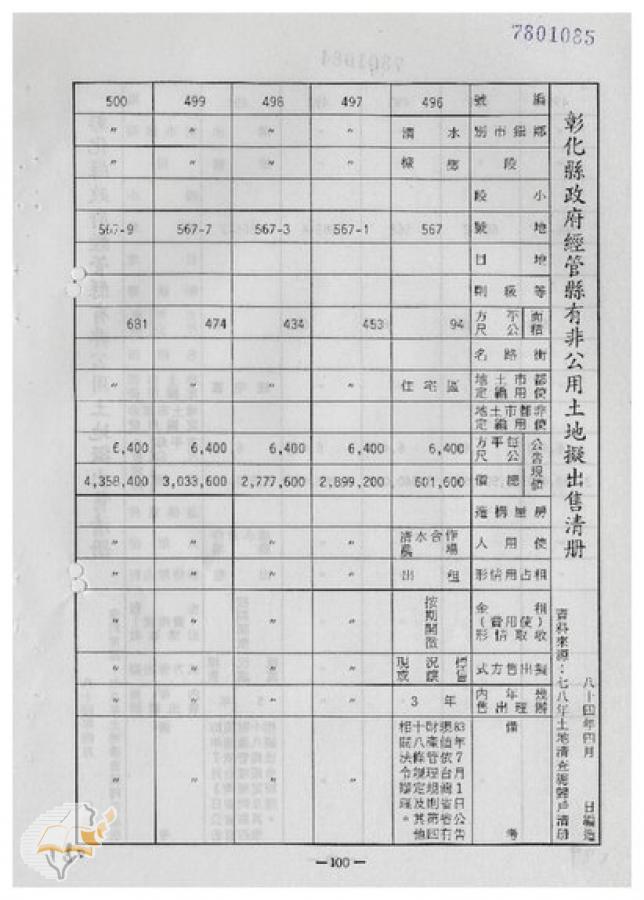 7801085
彰化縣政府經管縣有非公用土地擬出售清册
八十四年四月 日編造
資料來源：七八年土地清查總歸戶清册
編號 496 497 498 499 500
鄉鎮市別 清水 〃 〃 〃 〃
段 〃 〃 〃 〃
小段
地號 567 567-1 567-3 567-7 567-9
地目
等級則
面積 平方公尺 94 453 434 474 681
街路名
都市土地使用編定 住宅區 〃 〃 〃 〃
非都市土地使用編定
公告現值 每平方公尺 6,400 6,400 6,400 6,400 6,400
總價 601,600 2,899,200 2,777,600 3,033,600 4,358,400
房屋構造
使用人 清水合作農場 〃 〃 〃 〃
租占用情形 出租 〃 〃 〃 〃
租金（使用費）收取情形 按期開徵 〃 〃 〃 〃
擬出售方式 現況標售或讓售 〃 〃 〃 〃
幾年內辦理出售 3年 〃 〃 〃 〃
備考 83年7月1日公告現值依台灣省省有財產管理規則第四十八條規定及其他相關法令辦理。 〃 〃 〃 〃
—100—